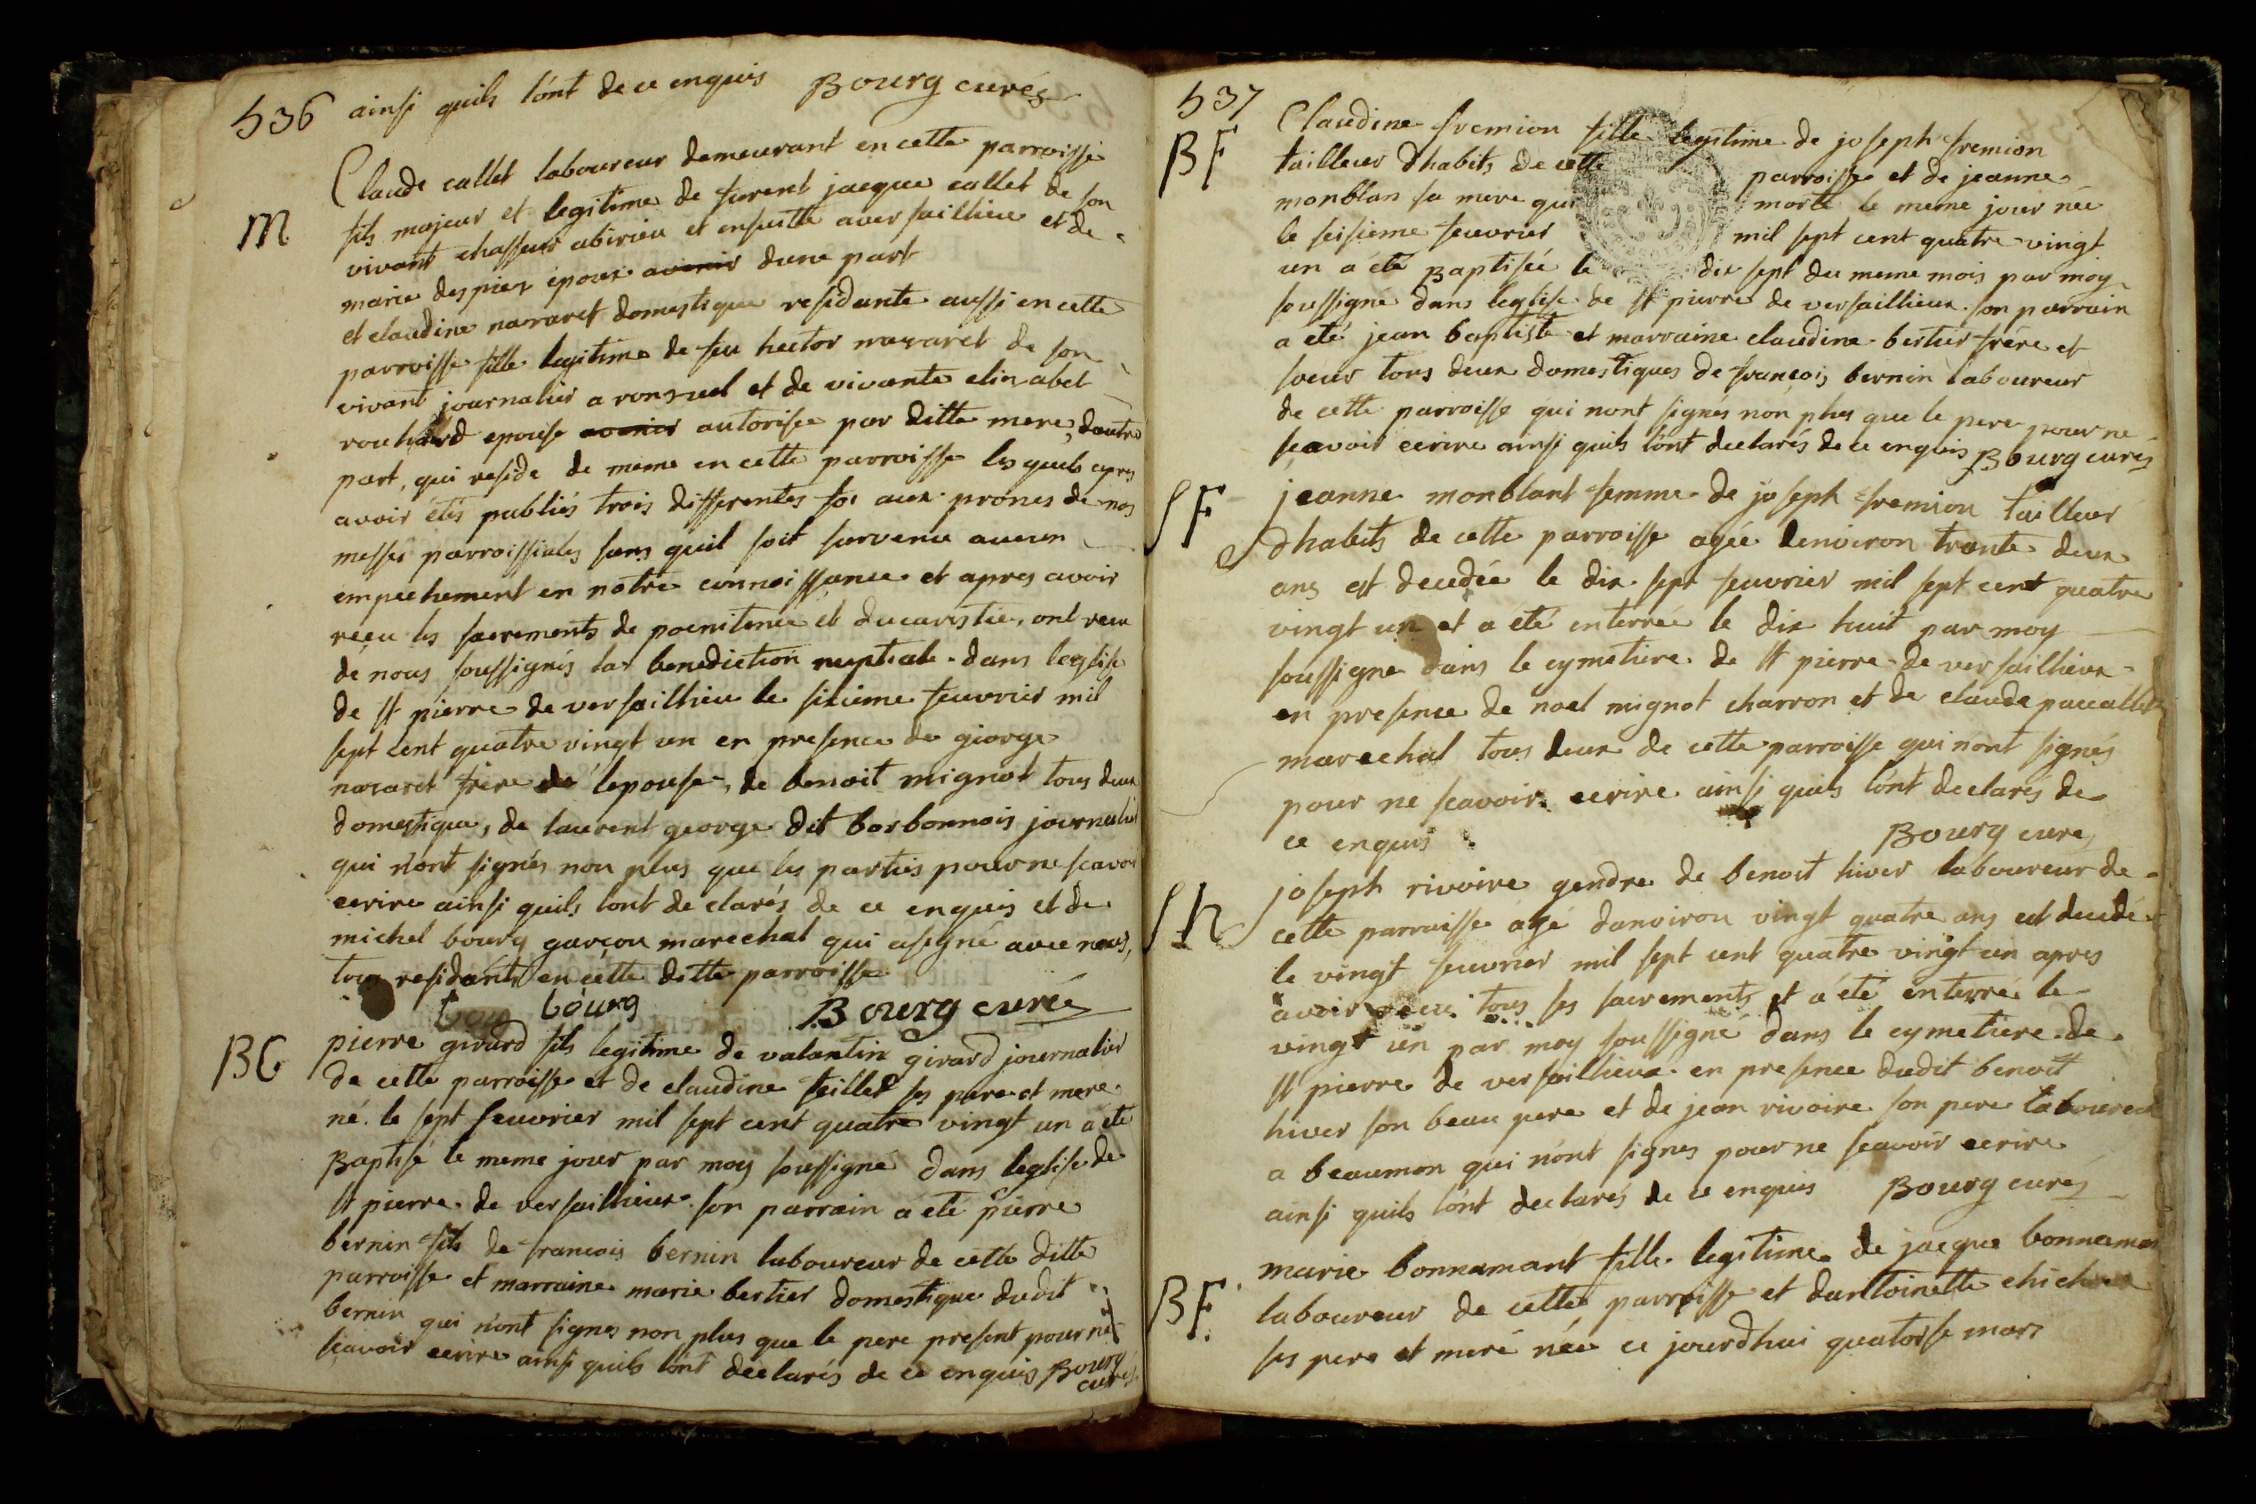 536 ainsi quils lônt de ce enquis Bourg curés
Claude callet laboureur demeurant en cette parroisse
M fils majeur et legitime de furent jacque callet de son
vivant chasseur abirieu et ensuitte aversaillieu et de
marie despier épour avenir dune part
et claudine nazaret domestique residante aussi en cette
parroisse fille legitime de feu hector nazaret de son
vivant journalier a ronzuel et de vivante elizabet
rouhard epouse avenir autorisée par ditte mere, dautre
part, qui reside de meme en cette parroisse lesquels apres
avoir étés publiés trois differentes foi aux prones de nos
messes parroissiales sans quil soit survenu aucun
empechement en nôtre connoissance et apres avoir
reçu les sacrements de poenitence et ducaristie, ont recu
de nous soussignés la benediction nuptiale dans leglise
de st pierre de versaillieu le sixieme feuvrier mil
sept cent quatre vingt un en presence de george
nazaret frère de lepouse, de benoit mignot tous deux
domestique, de laurent george dit borbonnois journalier
qui n'ont signés non plus que les parties pour ne scavoir
ecrire ainsi quils lont declarés de ce enquis et de
michel bourg garçon marechal qui asigné avec nous,
tous residants en cette ditte parroisse
bourg Bourg curé
BG pierre girard fils legitime de valantin girard journalier
de cette parroisse et de claudine feillet ses pere et mere
né le sept feuvrier mil sept cent quatre vingt un a été
Baptisé le meme jour par moy soussigné dans leglise de
st pierre de versaillieux son parrain a été pierre
bernin fils de francois bernin laboureur de cette ditte
parroisse et marraine marie bertier domestique dudit
bernin qui n'ont signes non plus que le pere present pour ne
scavoir ecrire ainsi quils lônt declarés de ce enquis Bourg
curés
537
BF Claudine fremion fille legitime de joseph fremion
tailleur dhabits de cette parroisse et de jeanne
monblan sa mere qui morte le meme jour née
le seisieme feuvrier mil sept cent quatre vingt
un a été Baptisée le dix sept du meme mois par moy
soussigné dans leglise de st pierre de versaillieux son parrain
a été jean baptiste et marraine claudine bertier frère et
soeur tous deux domestiques de françois bernin laboureur
de cette parroisse qui nont signés non plus que le pere pour ne
scavoir ecrire ainsi quils lônt declarés de ce enquis Bourg curés
SF jeanne monblant femme de joseph fremion tailleur
dhabits de cette parroisse agée denviron trante deux
ans est decedée le dix sept feuvrier mil sept cent quatre
vingt un et a été enterrée le dix huit par moy
soussigne dans le cymetiere de st pierre de versaillieux
en presence de noel mignot charron et de claude paccallet
marechal tous deux de cette parroisse qui n'ont signés
pour ne scavoir ecrire ainsi quils lônt declarés de
ce enquis Bourg cure
Sh joseph rivoire gendre de benoit hiver laboureur de
cette parroisse agé danviron vingt quatre ans est decidé
le vingt feuvrier mil sept cent quatre vingt un apres
avoir recu tous ses sacrements et a été enterré le
vingt un par moy soussigné dans le cymetiere de
st pierre de versaillieux en presence dudit benoit
hiver son beau pere et de jean rivoire son pere laboureur
a beaumon qui n'ônt signes pour ne scavoir ecrire
ainsi quils lônt declarés de ce enquis Bourg curés
marie bonnamant fille legitime de jacque bonnaman
BF laboureur de cette parroisse et dantoinette
ses pere et mere née ce jourdhui quatorse mars